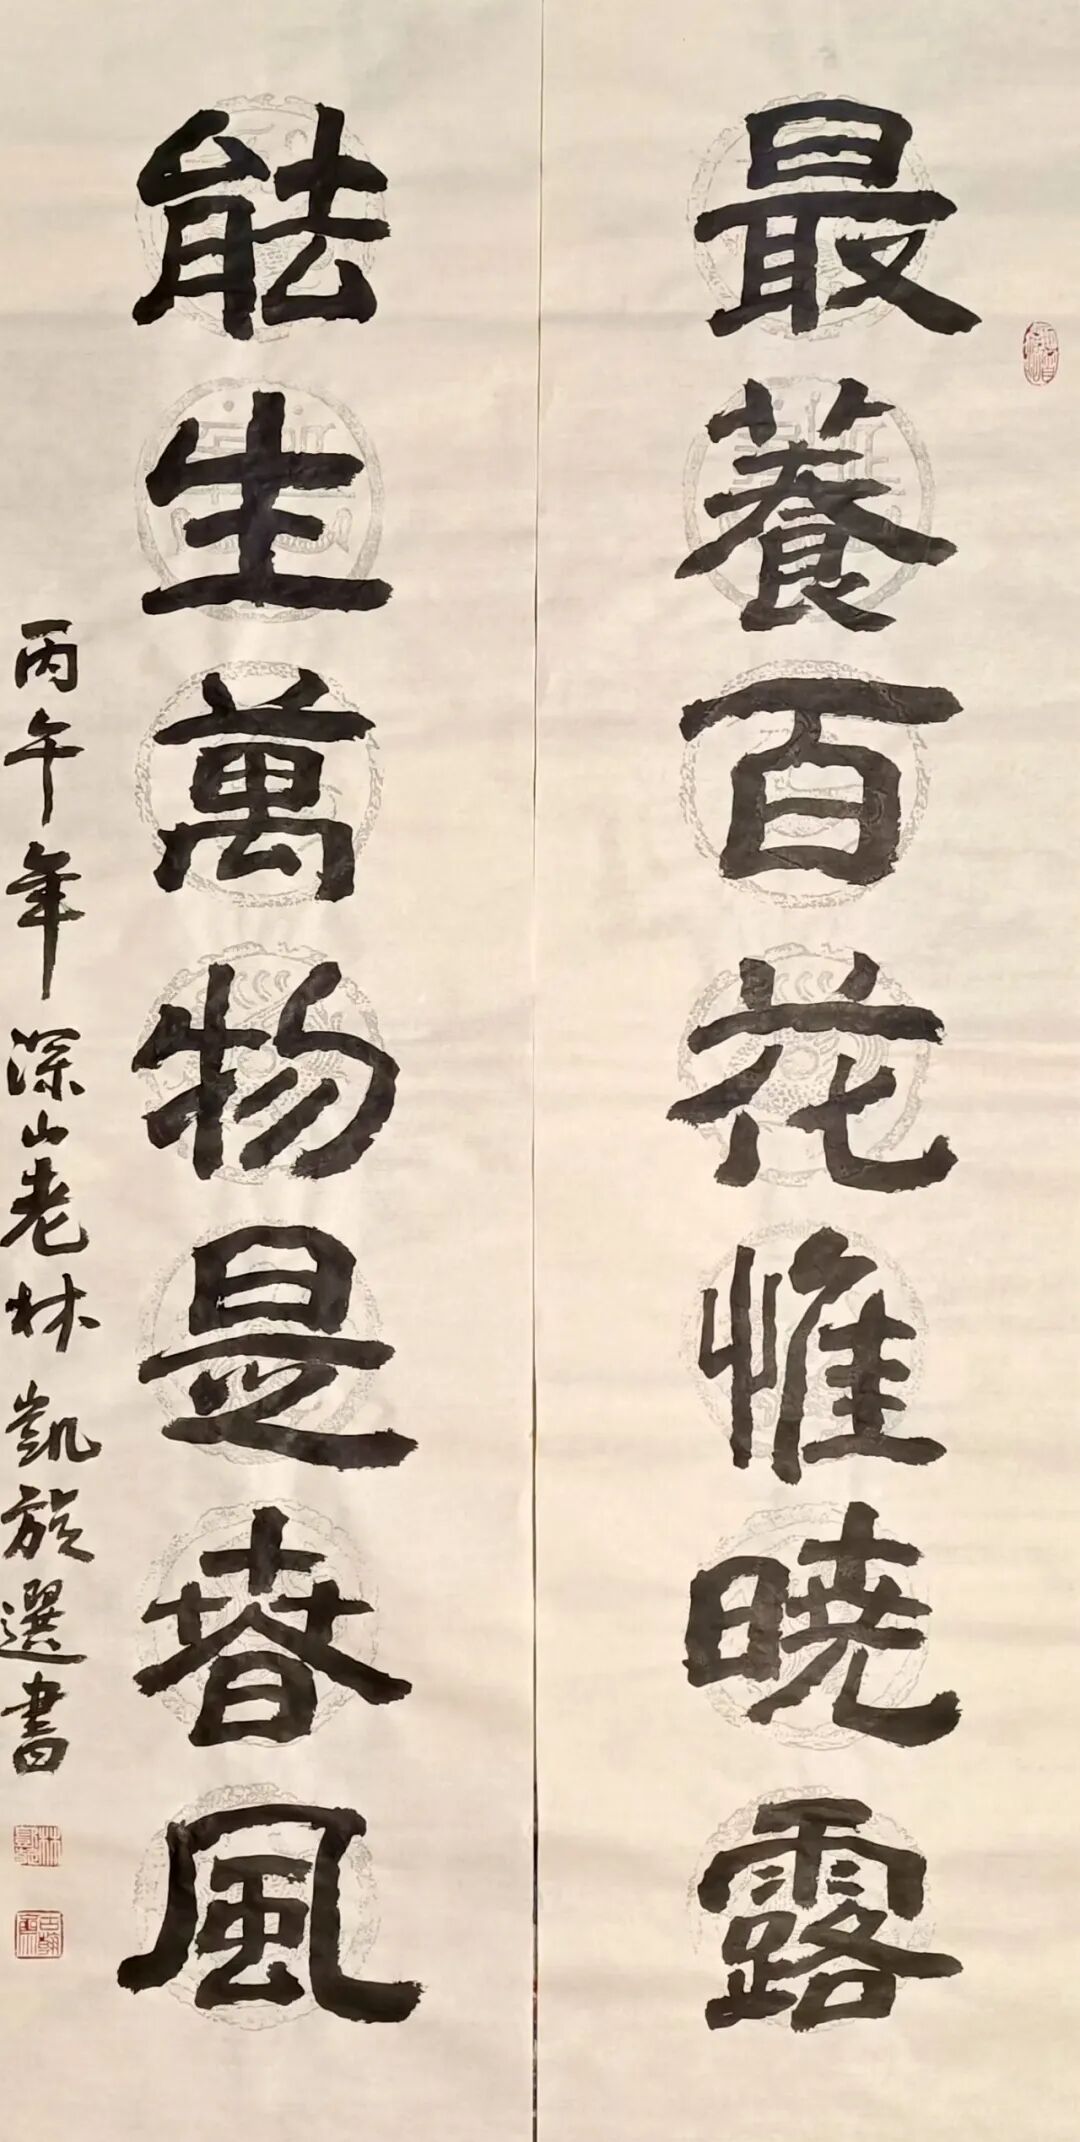 最養百花惟曉露
能生萬物是春風
丙午年深山老林凱旋選書